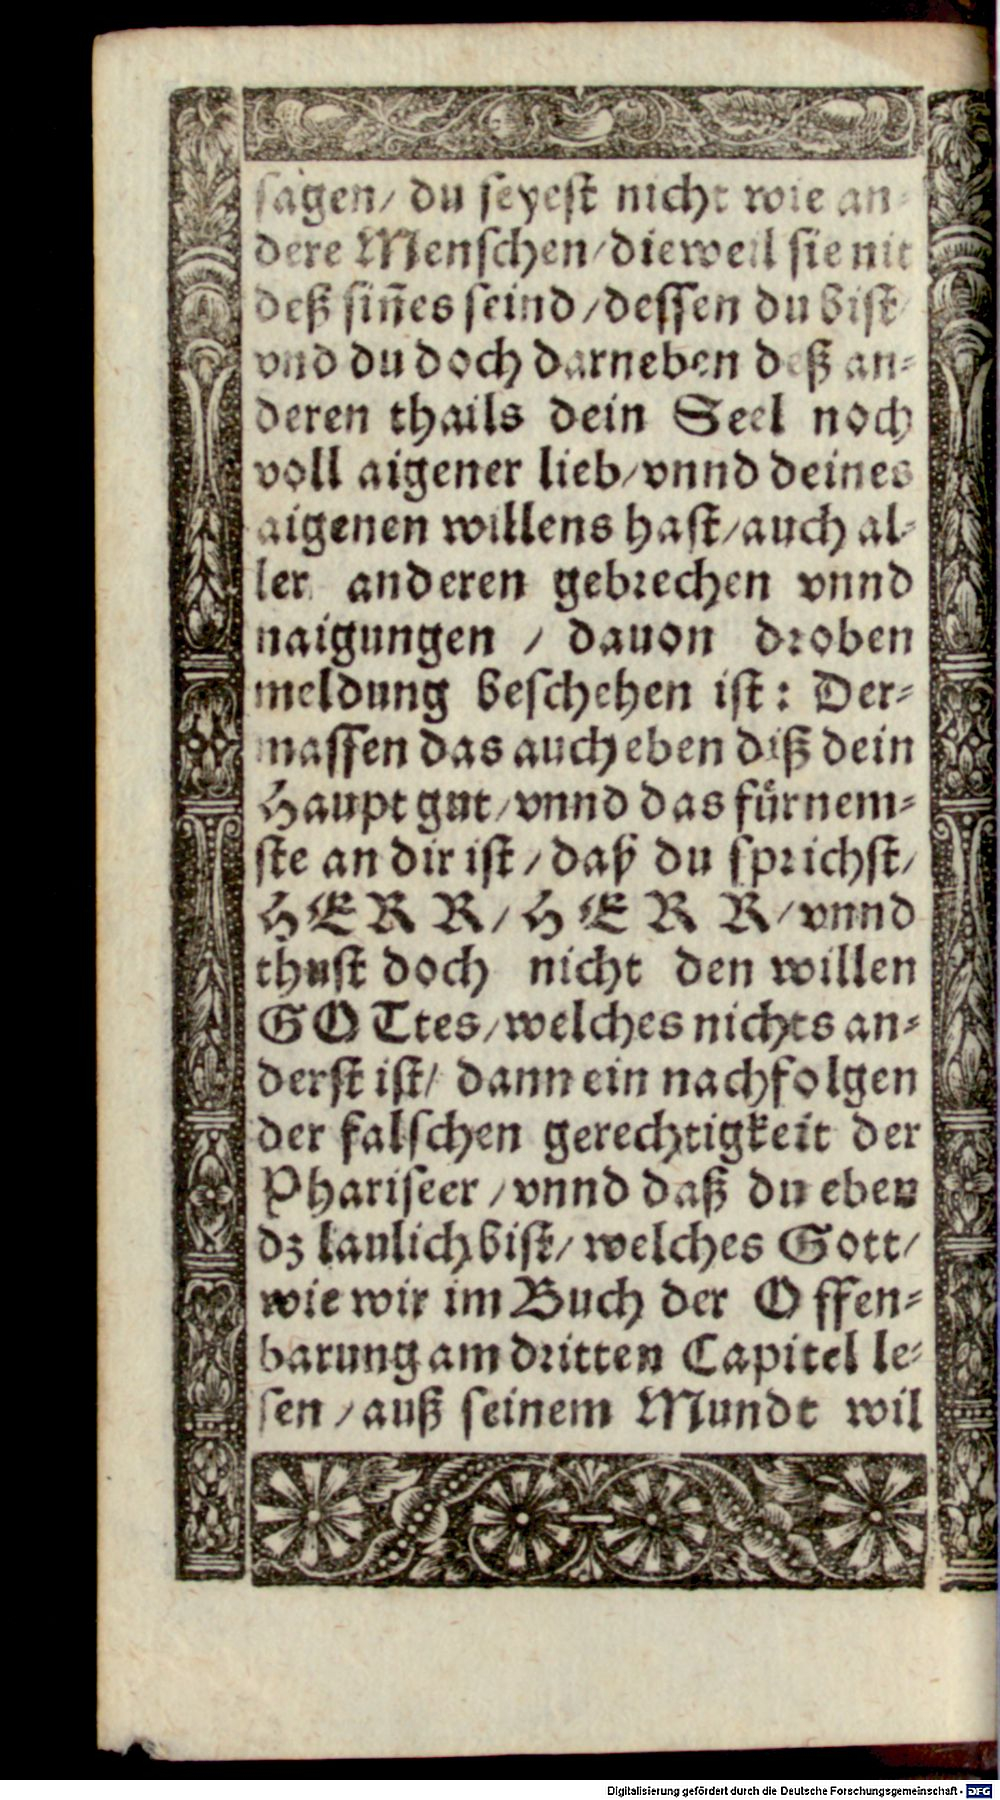 sagen/ du seyest nicht wie an-
dere Menschen/ dieweil sie nit
deß siñes seind/ dessen du bist/
vnd du doch darneben deß an-
deren thails dein Seel noch
voll aigener lieb/ vnnd deines
aigenen willens hast/ auch al-
ler anderen gebrechen vnnd
naigungen / dauon droben
meldung beschehen ist: Der-
massen das auch eben diß dein
Haupt gut/ vnnd das fürnem-
ste an dir ist/ daß du sprichst/
HERR/ HERR/ vnnd
thust doch nicht den willen
GOTtes/ welches nichts an-
derst ist/ dann ein nachfolgen
der falschen gerechtigkeit der
Phariseer/ vnnd daß du eben
dz laulich bist/ welches Gott/
wie wir im Buch der Offen-
barung am dritten Capitel le-
sen/ auß seinem Mundt wil
Digitalisierung gefördert durch die Deutsche Forschungsgemeinschaft - DFG